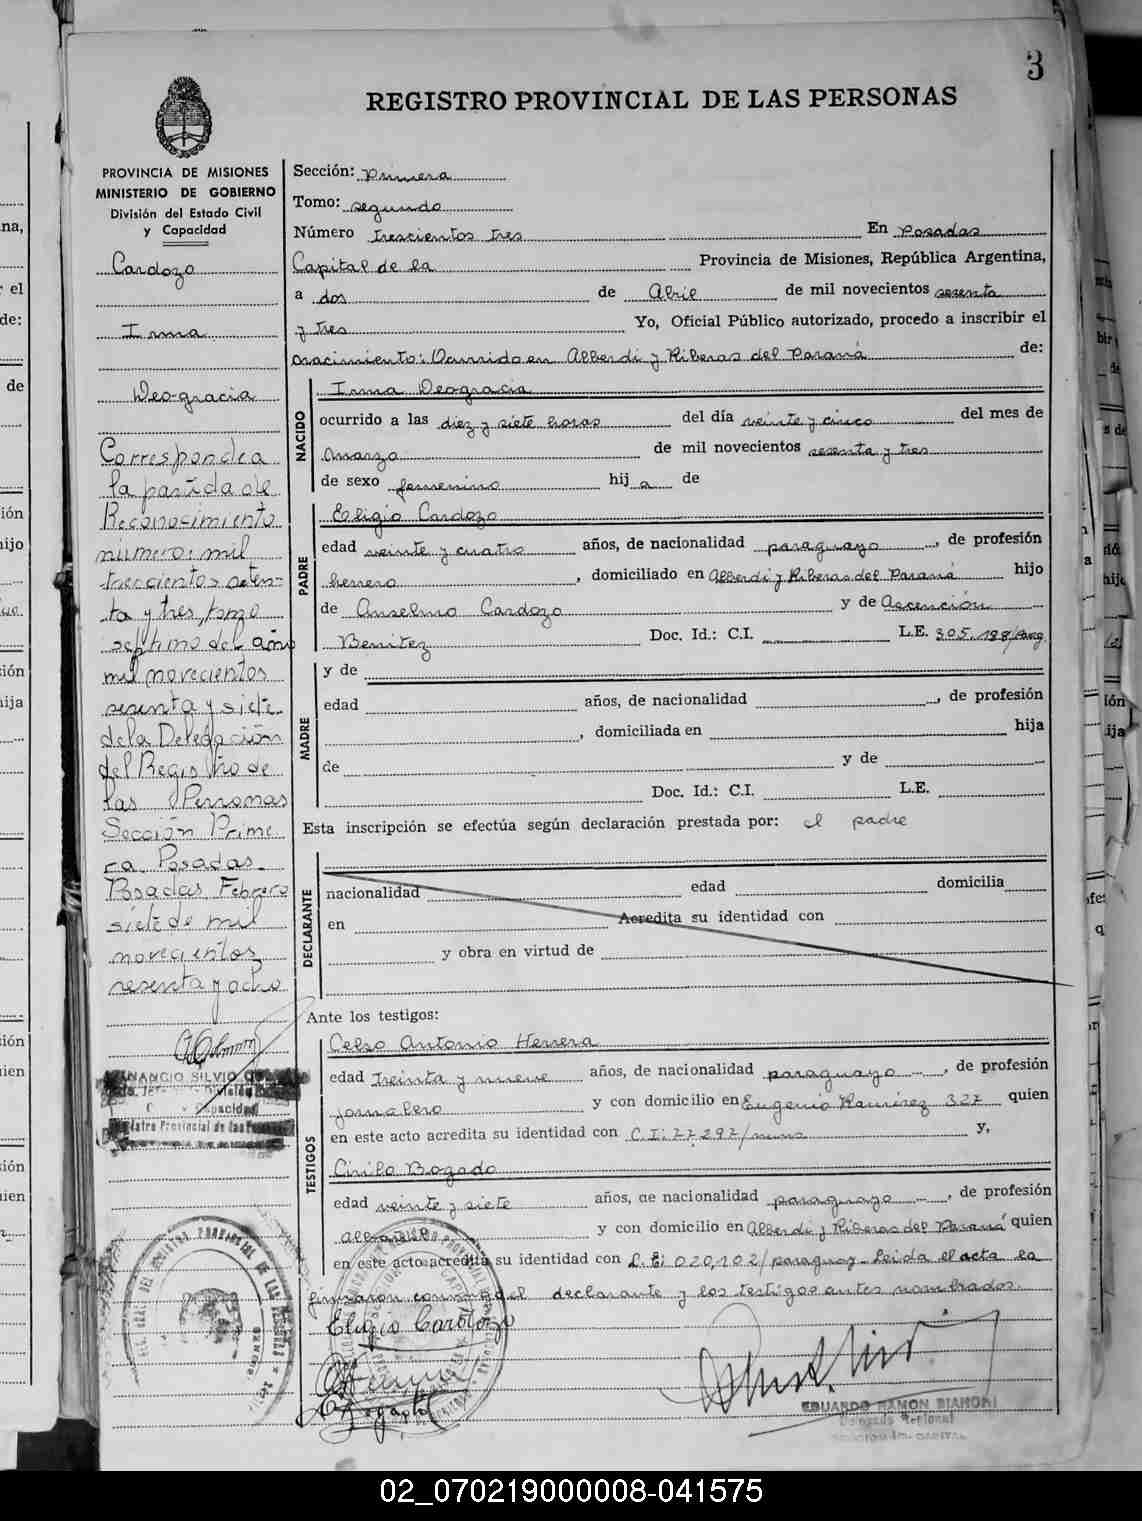 3
REGISTRO PROVINCIAL DE LAS PERSONAS
PROVINCIA DE MISIONES
MINISTERIO DE GOBIERNO
División del Estado Civil
y Capacidad
Cardozo
Irma
Deogracia
Corresponde a
la partida de
Reconocimiento
número: mil
trescientos seten-
ta y tres, tomo
séptimo del año
mil novecientos
sesenta y siete
de la Delegación
del Registro de
las Personas
Sección Prime
ra, Posadas.
Posadas, Febrero
siete de mil
novecientos
sesenta y ocho
Sección: Primera
Tomo: segundo
Número trescientos tres En Posadas
Capital de la Provincia de Misiones, República Argentina,
a dos de Abril de mil novecientos sesenta
y tres Yo, Oficial Público autorizado, procedo a inscribir el
nacimiento: Ocurrido en Alberdi y Riberas del Paraná de:
NACIDO
Irma Deogracia
ocurrido a las diez y siete horas del día veinte y cinco del mes de
marzo de mil novecientos sesenta y tres
de sexo femenino hija de
PADRE
Eligio Cardozo
edad veinte y cuatro años, de nacionalidad paraguayo, de profesión
herrero, domiciliado en Alberdi y Riberas del Paraná hijo
de Anselmo Cardozo y de Ascención
Benitez Doc. Id.: C.I. L.E. 305.198/parag.
MADRE
y de
edad años, de nacionalidad , de profesión
, domiciliada en hija
de y de
Doc. Id.: C.I. L.E.
Esta inscripción se efectúa según declaración prestada por: el padre
DECLARANTE
nacionalidad edad domicilia
en Acredita su identidad con
y obra en virtud de
Ante los testigos:
TESTIGOS
Celso Antonio Herrera
edad treinta y nueve años, de nacionalidad paraguayo, de profesión
jornalero y con domicilio en Eugenio Ramirez 327 quien
en este acto acredita su identidad con C.I: 77.297/mns y,
Cirilo Bogado
edad veinte y siete años, de nacionalidad paraguayo, de profesión
albañil y con domicilio en Alberdi y Riberas del Paraná quien
en este acto acredita su identidad con L.E: 020,102/paraguay. Leida el acta la
firmaron conmigo el declarante y los testigos antes nombrados.
Eligio Cardozo
EDUARDO RAMON BIANCHI
Delegado Regional
02_070219000008-041575